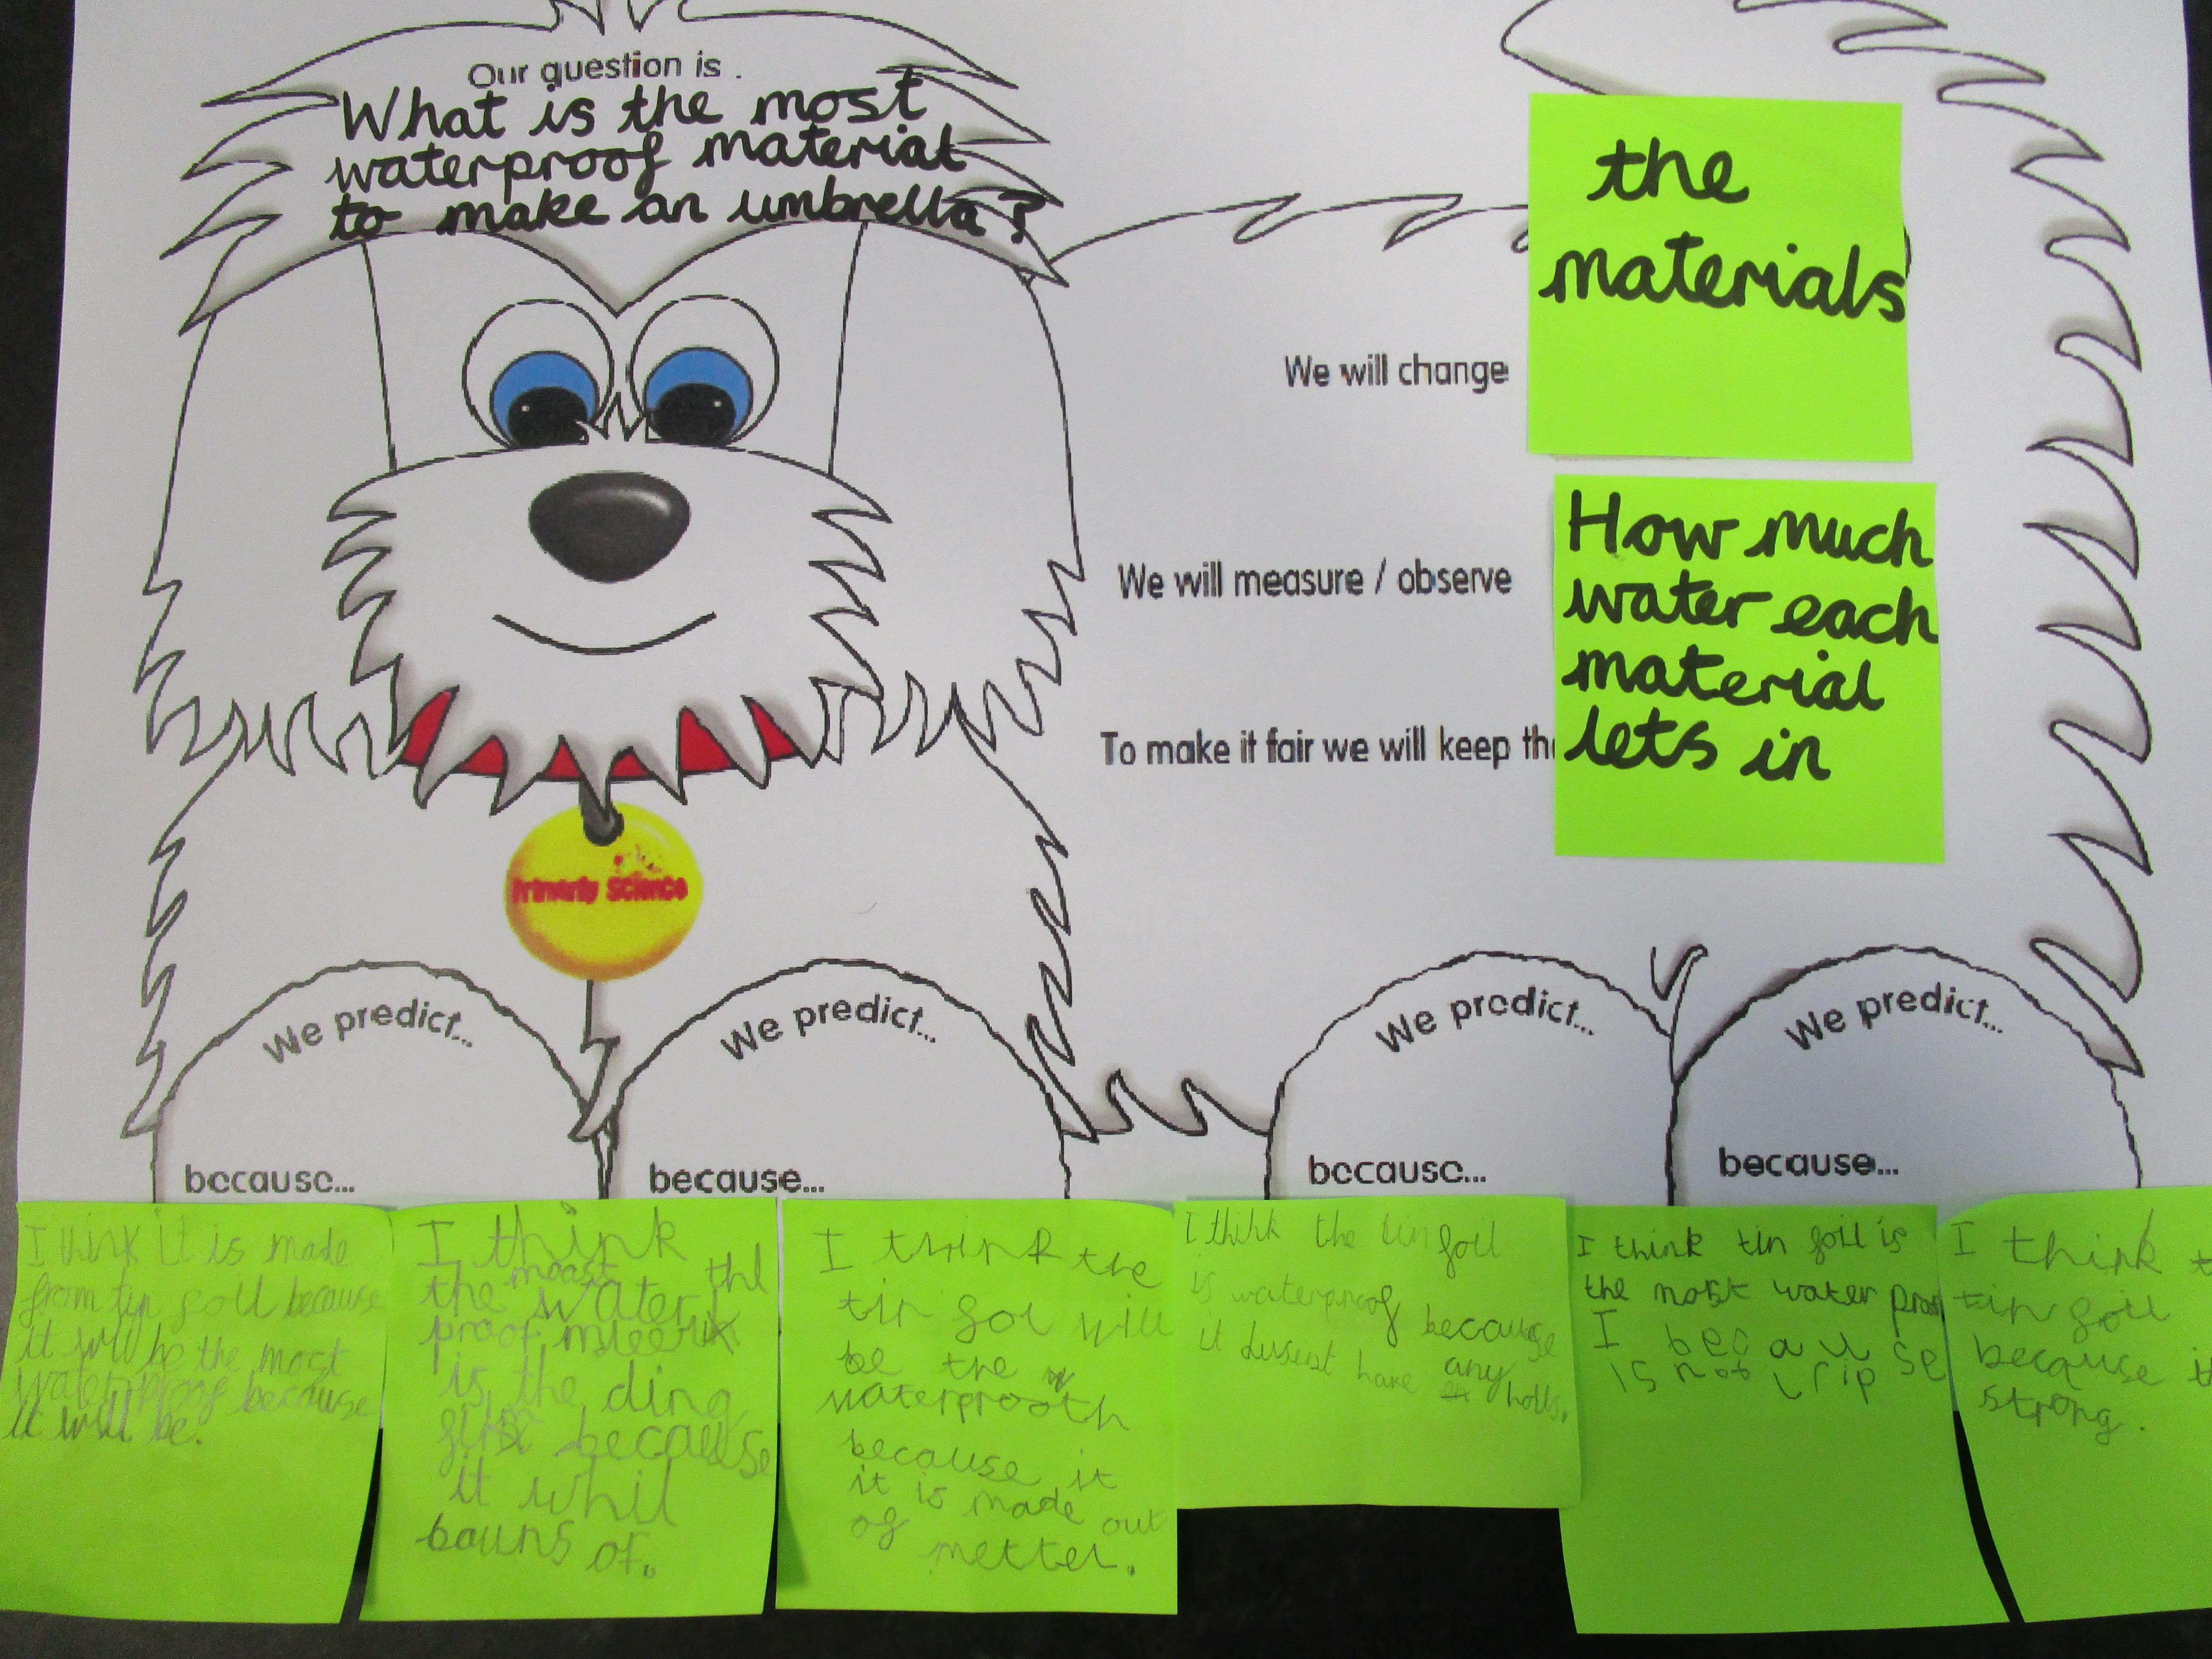 Our question is .
What is the most
waterproof material
to make an umbrella?
the
materials
We will change
How much
water each
material
lets in
We will measure / observe
To make it fair we will keep the
Primary Science
We predict...
because...
We predict...
because...
We predict...
because...
We predict...
because...
I think it is made
from tin foil because
it will be the most
waterproof because
it will be.
I think
the moast
the water
proof
is the ding
because
it whil
bouns of.
I think the
tin foi will
be the
waterprooth
because it
it is made out
of
metter.
I think the tin foil
is waterproof because
it dusent have any holls.
I think tin foil is
the most water proof
I becau se
is not rip
I think t
tin foil
because it
strong.